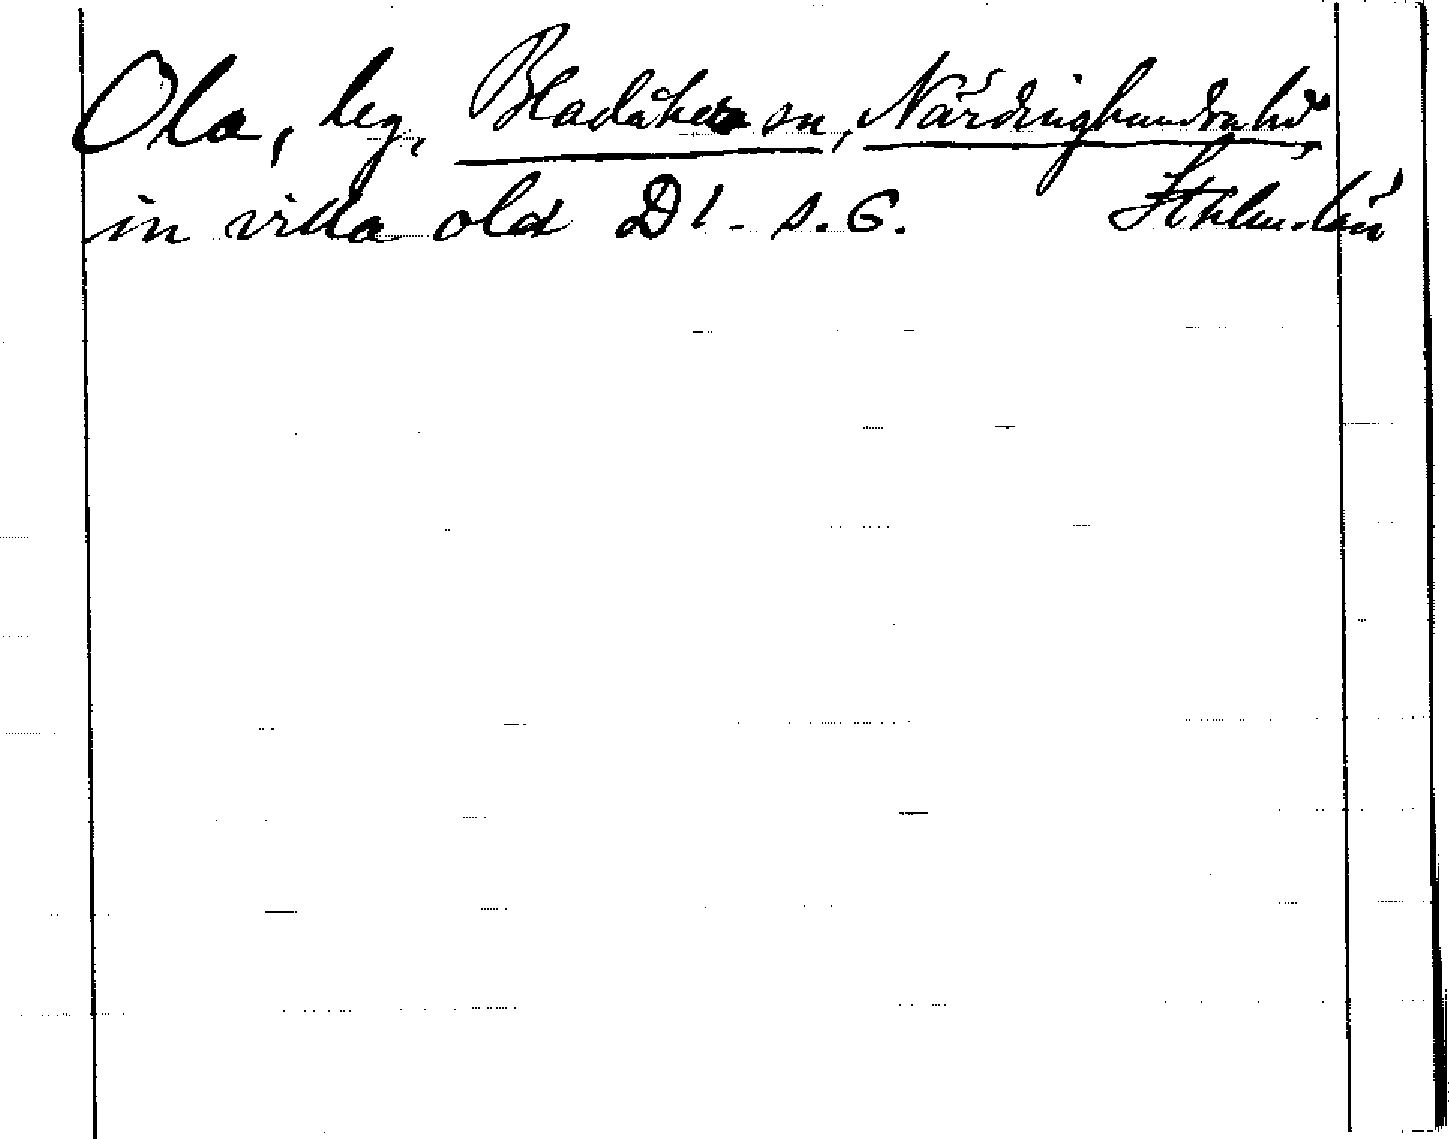 Ola, beg, Bladåkers sn, Närdinghundra hd
in villa olа D1. s. 6. Sthlms. län